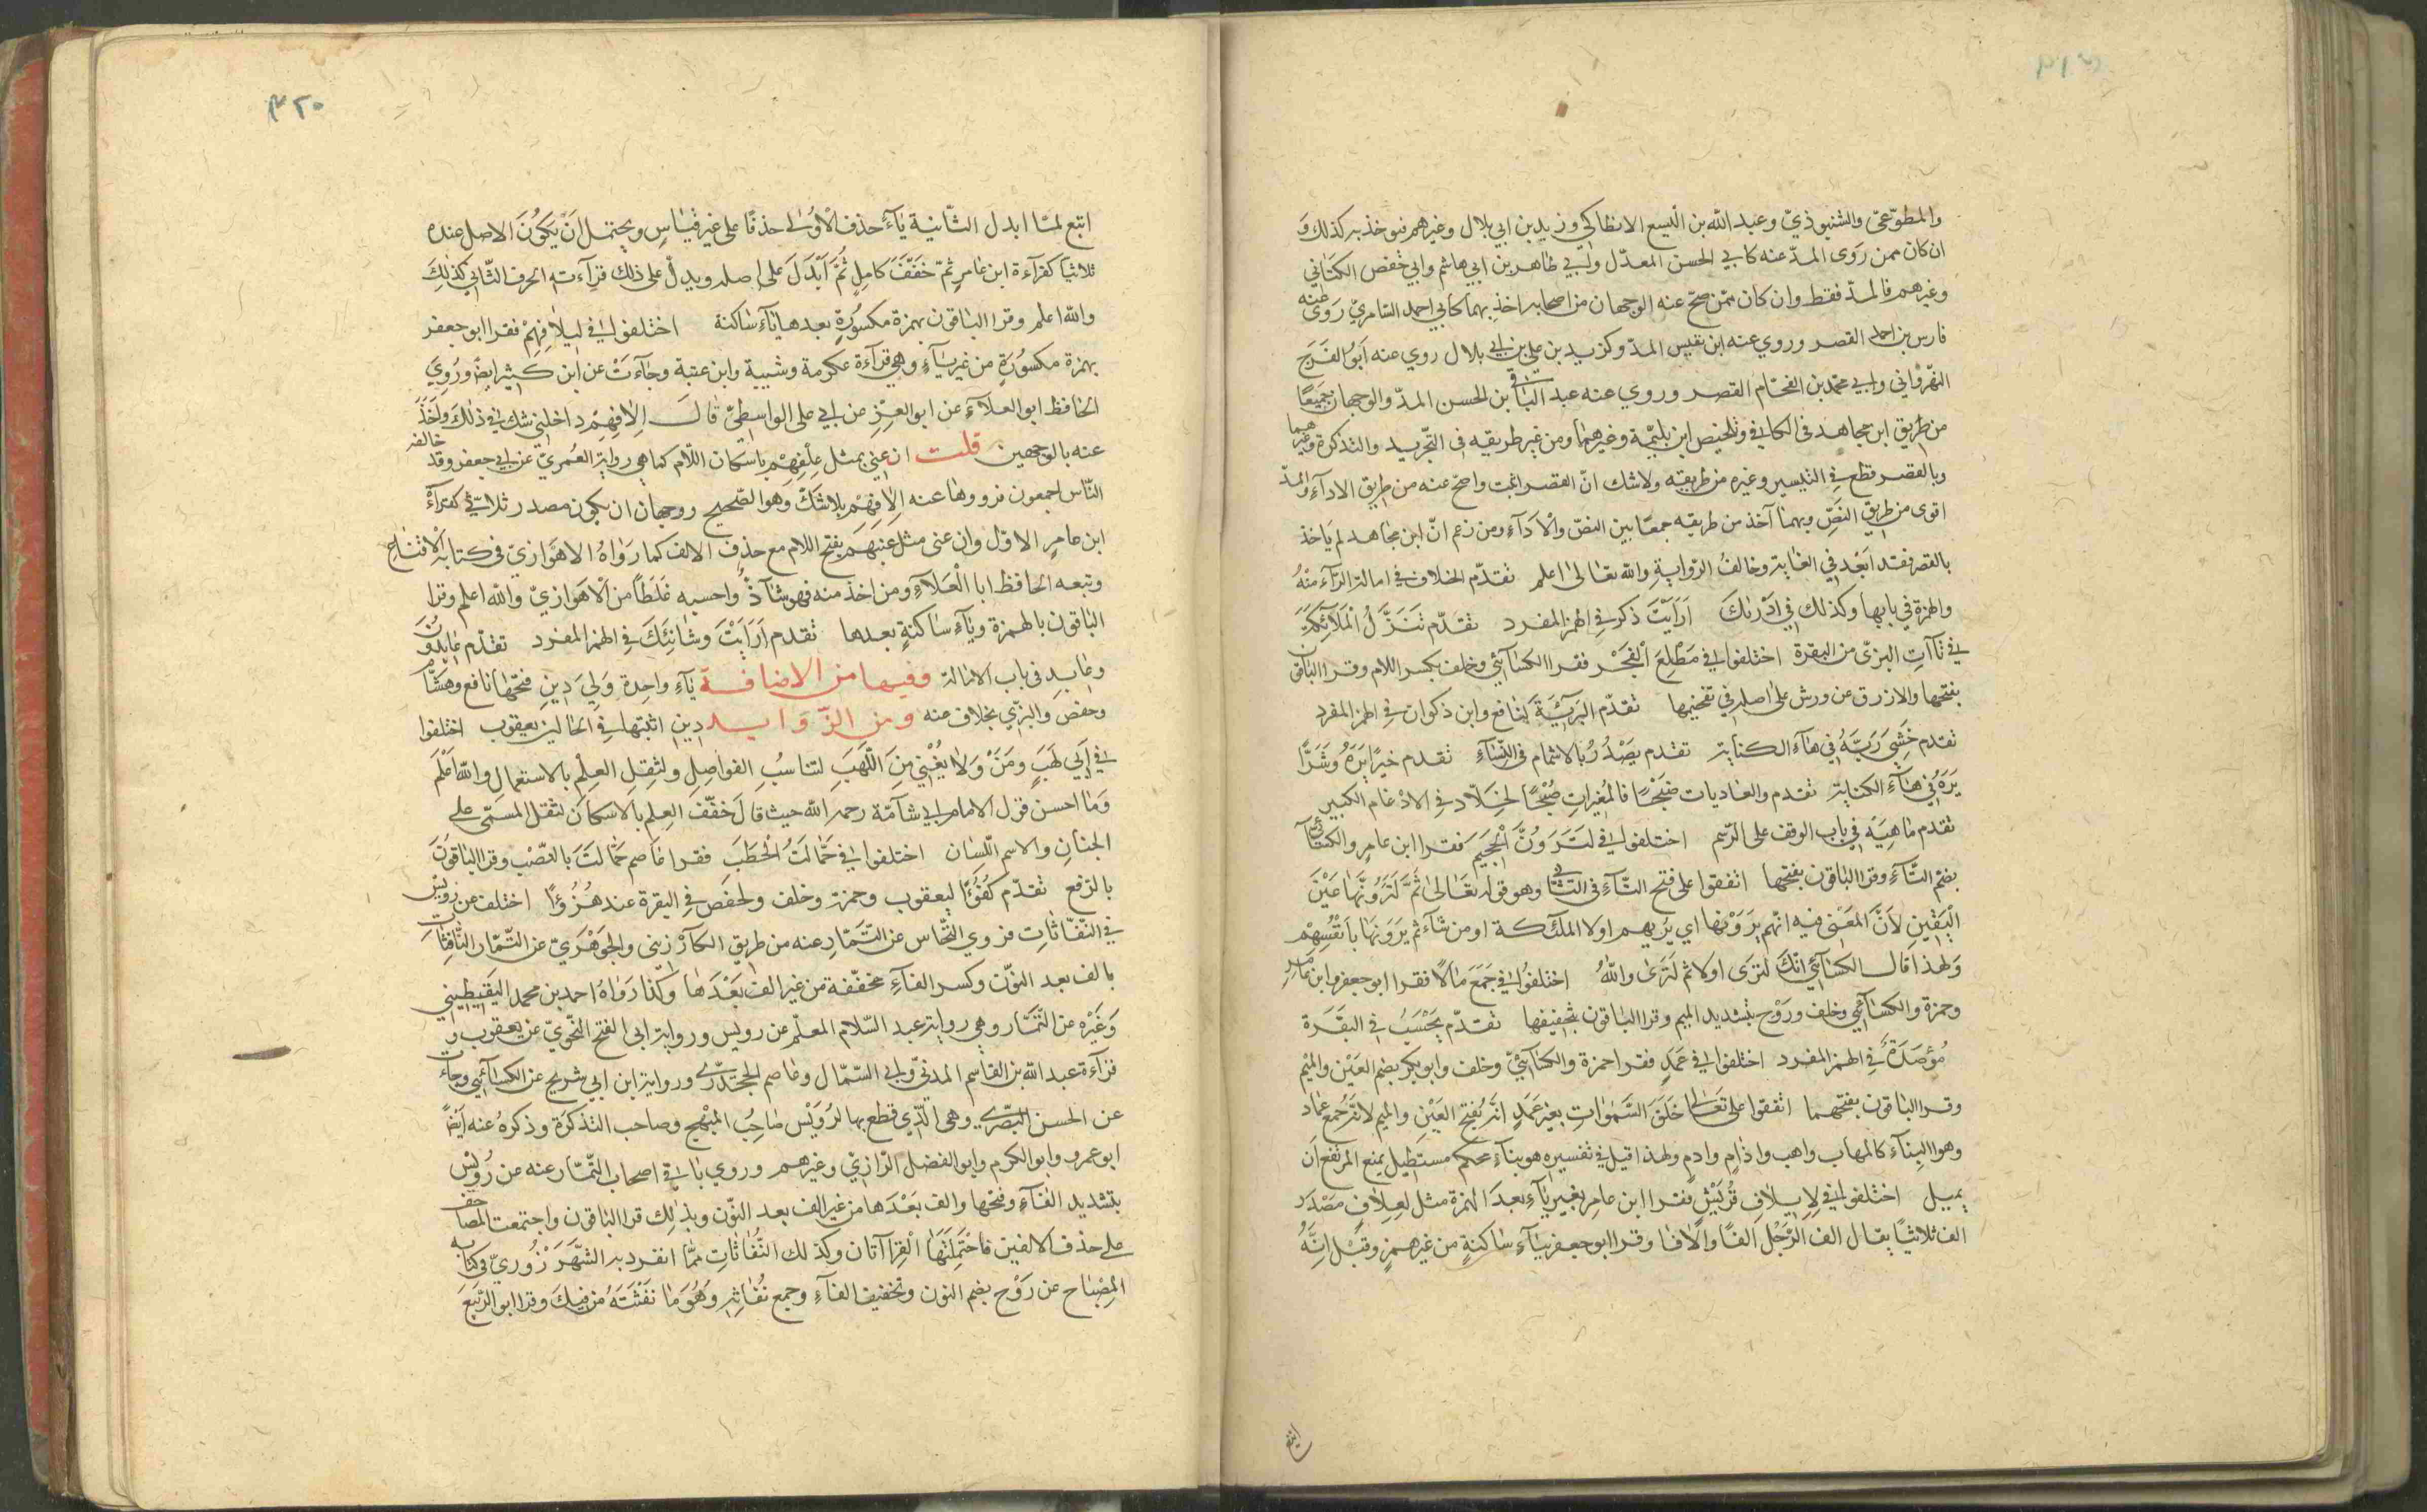 والمطوّعيّ والشنبوذيّ وعبد الله بن اليسع الانطاكي وزيد بن ابي بلال وغيرهم فيوخذ به كذلك و
ان كان ممن روى المدّ عنه كابي الحسن المعدّل وابي طاهر بن ابي هاشم وابي حفص الكتاني
وغيرهم فالمدّ فقط وان كان ممّن صحّ عنه الوجهان من اصحابه اخذ بهما كابي احمد السّامريّ روى عنه
فارس بن احمد القصر وروي عنه ابن نفيس المدّ وكزيد بن علي بن ابي بلال روي عنه ابو الفرج
النهرواني وابي محمّد بن الفحّام القصر وروي عنه عبد الباقي بن الحسن المدّ والوجهان جميعًا
من طريق ابن مجاهد في الكافي وتلخيص ابن بليّمة وغيرهما ومن غير طريقه في التجريد والتذكرة وغيرهما
وبالقصر قطع في التيسير وغيره من طريقه ولا شك انّ القصر اثبت واصحّ عنه من طريق الاداء والمدّ
اقوى من طريق النصّ وبهما آخذ من طريقه جمعًا بين النصّ والأداء ومن زعم انّ ابن مجاهد لم ياخذ
بالقصر فقد ابعد في الغاية وخالف الرّواية والله تعالى اعلم تقدّم الخلاف في امالة الرّاء منه
والهمزة في بابها وكذلك في ادرىك ارايت ذكر في الهمز المفرد تقدّم تَنَزَّلُ الملائكة
في تاآت البزّي من البقرة اختلفوا في مطلع الفجر فقرا الكسائي وخلف بكسر اللام وقرا الباقون
بفتحها والازرق عن ورش على اصله في تفخيمها تقدّم البريّة لنافع وابن ذكوان في الهمز المفرد
تقدم خشي ربّه في هاء الكناية تقدم يصدر بالاشمام في النّساء تقدم خيرًا يره وشرًّا
يره في هاء الكناية تقدم والعاديات ضبحًا فالمغيرات صبحًا لخلّاد في الادغام الكبير
تقدم ما هيه في باب الوقف على الرّسم اختلفوا في لترونّ الجحيم فقرا ابن عامر والكسائي
بضمّ التّاء وقرا الباقون بفتحها اتفقوا على فتح التّاء في الثاني وهو قوله تعالى ثمّ لترونّها عين
اليقين لأنّ المعنى فيه انّهم يرونها اي يريهم اولا الملائكة او من شاء ثم يرونها بانفسهم
ولهذا قال الكسائي انّك لتُرى اولا ثم لتَرى والله اختلفوا في جمع مالًا فقرا ابو جعفر وابن عامر
وحمزة والكسائي وخلف وروح بتشديد الميم وقرا الباقون بتخفيفها تقدّم يحسب في البقرة
مؤصدة في الهمز المفرد اختلفوا في عمد فقرا حمزة والكسائيّ وخلف وابو بكر بضم العين والميم
وقرا الباقون بفتحهما اتفقوا على تعالى خلق السّموات بغير عمد انّه بفتح العين والميم لانّه جمع عماد
وهو البناء كالهاب واهب واذام وادم ولهذا قيل في تفسيره هو بناء محكم مستطيل يمنع المرتفع ان
يميل اختلفوا في لإيلاف قريش فقرا ابن عامر بغير ياء بعد الهمزة مثل لعلاف مصدر
الف ثلاثيًّا يقال الف الرّجل الفًا والافا وقرا ابو جعفر بياء ساكنة من غير همز وقيل انّه
اتبع
٤٢٠
اتبع لمّا ابدل الثّانية ياء حذف الأولى حذفًا على غير قياس ويحتمل ان يكون الاصل عنده
ثلاثيًّا كقراءة ابن عامر ثمّ خفّف كامل ثمّ ابدل على اصله ويدلّ على ذلك قراءته الحرف الثّاني كذلك
والله اعلم وقرا الباقون بهمزة مكسورة بعدها ياء ساكنة اختلفوا في ايلافهم فقرا ابو جعفر
بهمزة مكسورة من غير ياء وهي قراءة عكرمة وشيبة وابن عتبة وجاءت عن ابن كثير ايضا وروى
الحافظ ابو العلاء عن ابو العزّ عن ابي على الواسطيّ قال الافهم داخلني شك في ذلك واخذ
عنه بالوجهين قلت ان عني بمثل علفهم باسكان اللّام كما هي رواية العُمريّ عن ابي جعفر وقد خالفه
النّاس اجمعون فرووها عنه إلافهم بلا شكّ وهو الصّحيح ووجهان ان يكون مصدر ثلاثيّ كقراءة
ابن عامر الاوّل وان عنى مثل عنبهم بفتح اللام مع حذف الالف كما رواه الاهوازيّ في كتابه الاقناع
وتبعه الحافظ ابا العلاء ومن اخذ منه فهو شاذّ واحسبه غلطا من الاهوازيّ والله اعلم وقرا
الباقون بالهمزة وياء ساكنة بعدها تقدم ارايت وشانئك في الهمز المفرد تقدّم عابدون
وعابد في باب الامالة وفيها من الاضافة ياء واحدة ولي دين فتحها نافع وهشام
وحفص والبزّي بخلاف عنه ومن الزّوايد دين اثبتها في الحالين يعقوب اختلفوا
في ابي لهب ومن ولا يغني من اللّهب لتناسب الفواصل ولثقل العلم بالاستعمال والله اعلم
وما احسن قول الامام ابي شامّة رحمه الله حيث قال خفّف العلم بالاسكان لثقل المسمّى على
الجنان والاسم اللّسان اختلفوا في حمّالة الحطب فقرا عاصم حمّالة بالنّصب وقرا الباقون
بالرّفع تقدّم كفوًا ليعقوب وحمزة وخلف ولحفص في البقرة عند هزؤًا اختلف عن رويس
في النّفّاثات فروي النّخّاس عن التّمّار عنه من طريق الكارزيني والجوهريّ عن التّمّار النّافثات
بالف بعد النّون وكسر الفاء مخفّفة من غير الف بعدها وكذا رواه احمد بن محمد اليقطيني
وغيره عن التمّار وهي رواية عبد السّلام المعلّم عن رويس ورواية ابي الفتح النّحويّ عن يعقوب و
قراءة عبد الله بن القاسم المدني وابي السّمّال وعاصم الجحدري ورواية ابن ابي شريح عن الكسائي وجاءت
عن الحسن البصري وهى الّذي قطع بها لرويس صاحب المبهج وصاحب التذكرة وذكره عنه ايضًا
ابو عمرو وابو الكرم وابو الفضل الرّازيّ وغيرهم وروي باقي اصحاب التّمّار عنه عن رويس
بتشديد الفاء وفتحها والف بعدها من غير الف بعد النّون وبذلك قرا الباقون واجتمعت المصاحف
على حذف الالفين فاحتملتها القراآتان وكذلك النّفاثات ممّا انفرد به الشّهرزوريّ في كتابه
المصباح عن روح بضم النون وتخفيف الفاء وجمع نفاثه وهو ما نفثته من فيك وقرا ابو الرّبيع